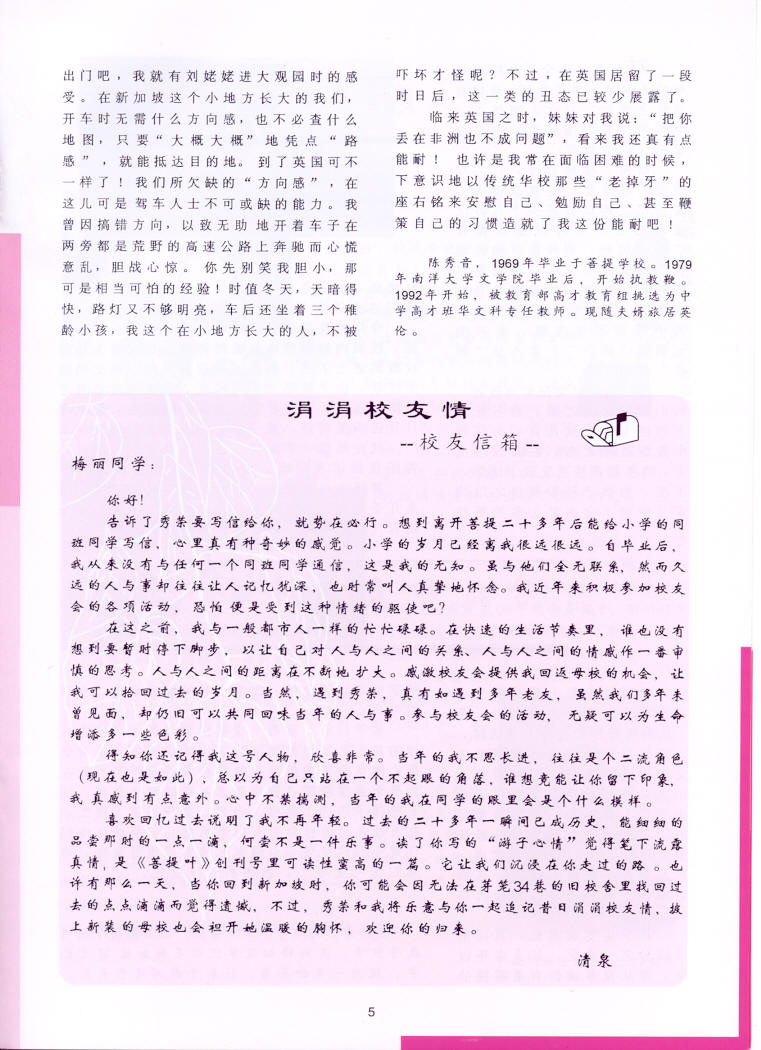 出门吧，我就有刘姥姥进大观园时的感
受。在新加坡这个小地方长大的我们，
开车时无需什么方向感，也不必查什么
地图，只要“大概大概”地凭点“路
感”，就能抵达目的地。到了英国可不
一样了！我们所欠缺的“方向感”，在
这儿可是驾车人士不可或缺的能力。我
曾因搞错方向，以致无助地开着车子在
两旁都是荒野的高速公路上奔驰而心慌
意乱，胆战心惊。你先别笑我胆小，那
可是相当可怕的经验！时值冬天，天暗得
快，路灯又不够明亮，车后还坐着三个稚
龄小孩，我这个在小地方长大的人，不被
吓坏才怪呢？不过，在英国居留了一段
时日后，这一类的丑态已较少展露了。
临来英国之时，妹妹对我说：“把你
丢在非洲也不成问题”，看来我还真有点
能耐！也许是我常在面临困难的时候，
下意识地以传统华校那些“老掉牙”的
座右铭来安慰自己、勉励自己、甚至鞭
策自己的习惯造就了我这份能耐吧！
陈秀音，1969年毕业于菩提学校。1979
年南洋大学文学院毕业后，开始执教鞭。
1992年开始，被教育部高才教育组挑选为中
学高才班华文科专任教师。现随夫婿旅居英
伦。
涓涓校友情
--校友信箱--
梅丽同学：
你好！
告诉了秀荣要写信给你，就势在必行。想到离开菩提二十多年后能给小学的同
班同学写信，心里真有种奇妙的感觉。小学的岁月已经离我很远很远。自毕业后，
我从来没有与任何一个同班同学通信，这是我的无知。虽与他们全无联系，然而久
远的人与事却往往让人记忆犹深，也时常叫人真挚地怀念。我近年来积极参加校友
会的各项活动，恐怕便是受到这种情绪的驱使吧？
在这之前，我与一般都市人一样的忙忙碌碌。在快速的生活节奏里，谁也没有
想到要暂时停下脚步，以让自己对人与人之间的关系、人与人之间的情感作一番审
慎的思考。人与人之间的距离在不断地扩大。感激校友会提供我回返母校的机会，让
我可以拾回过去的岁月。当然，遇到秀荣，真有如遇到多年老友，虽然我们多年未
曾见面，却仍旧可以共同回味当年的人与事。参与校友会的活动，无疑可以为生命
增添多一些色彩。
得知你还记得我这号人物，欣喜非常。当年的我不思长进，往往是个二流角色
（现在也是如此），总以为自己只站在一个不起眼的角落，谁想竟能让你留下印象，
我真感到有点意外。心中不禁揣测，当年的我在同学的眼里会是个什么模样。
喜欢回忆过去说明了我不再年轻。过去的二十多年一瞬间已成历史，能细细的
品尝那时的一点一滴，何尝不是一件乐事。读了你写的“游子心情”觉得笔下流露
真情，是《菩提叶》创刊号里可读性蛮高的一篇。它让我们沉浸在你走过的路。也
许有那么一天，当你回到新加坡时，你可能会因无法在芽笼34巷的旧校舍里找回过
去的点点滴滴而觉得遗憾，不过，秀荣和我将乐意与你一起追记昔日涓涓校友情，披
上新装的母校也会袒开她温暖的胸怀，欢迎你的归来。
清泉
5